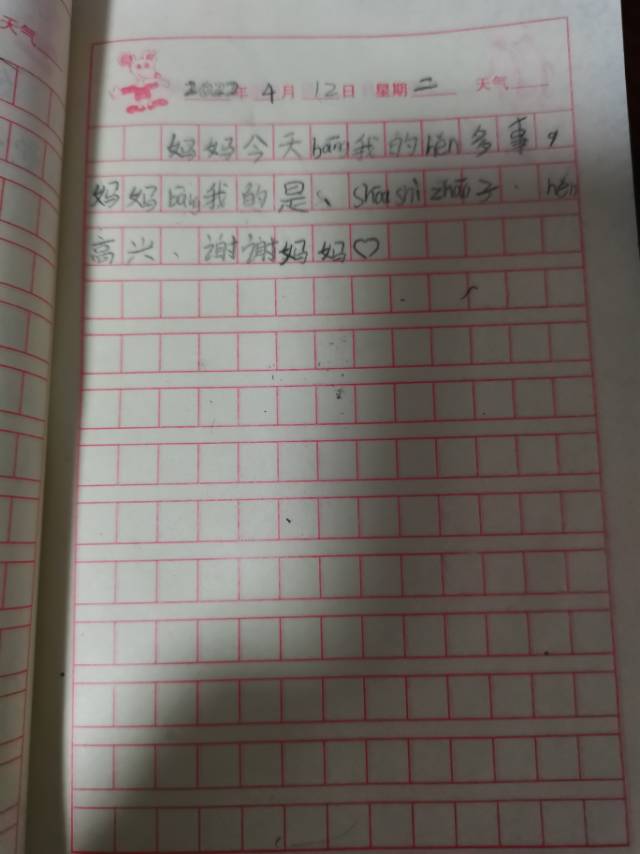 天气
2022年 4月 12日 星期二 天气
妈妈今天bāng我的hěn多事，
妈妈bāng我的是、shōu shí zhuō子. hěn
高兴、谢谢妈妈♡